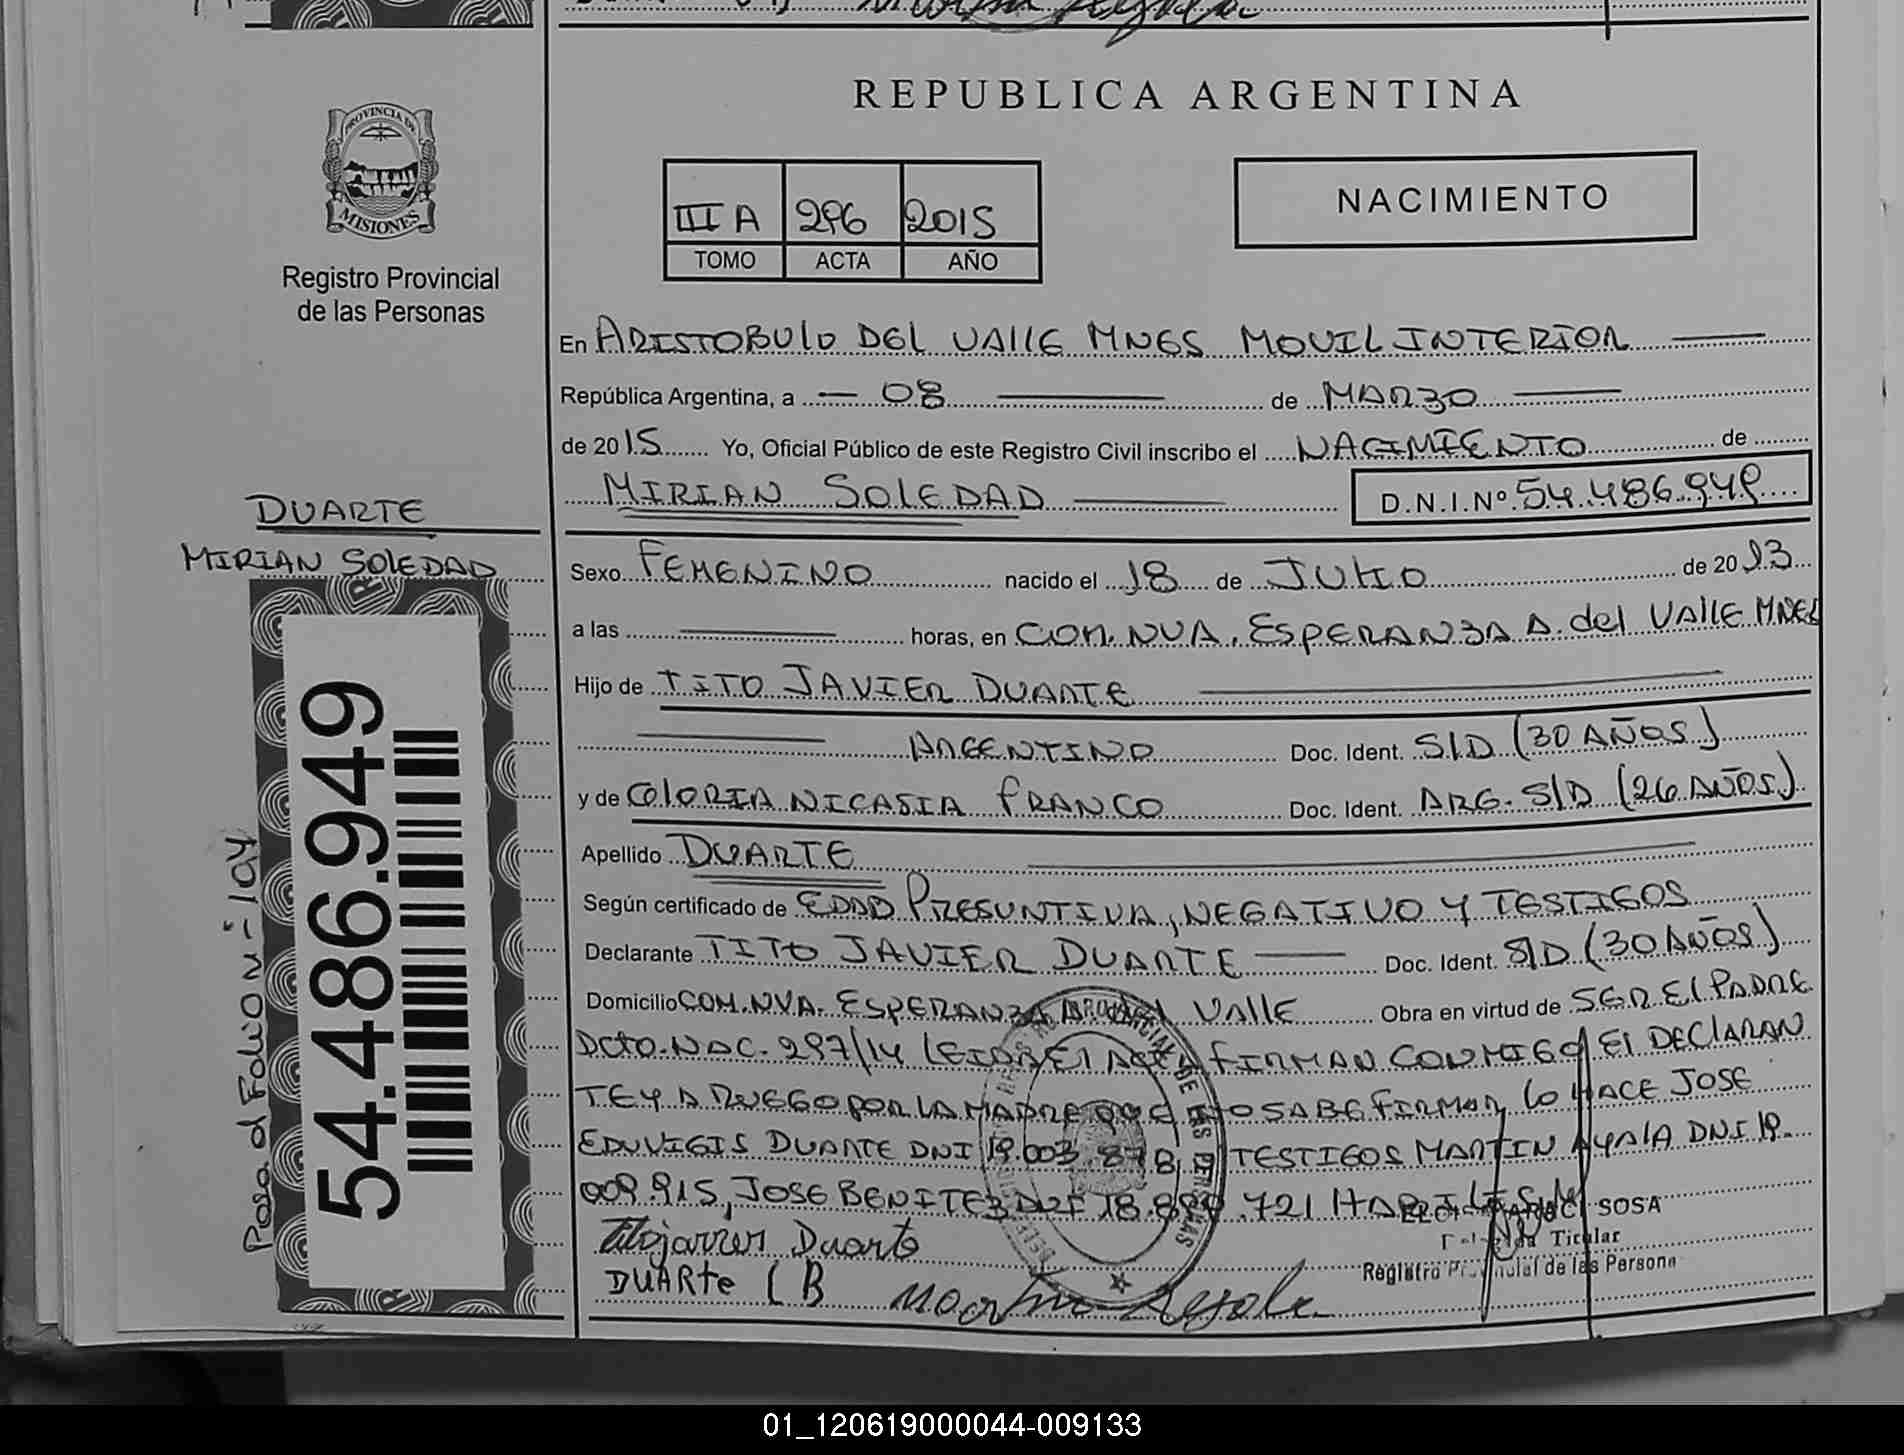 REPUBLICA ARGENTINA
PROVINCIA DE
MISIONES
Registro Provincial
de las Personas
III A 296 2015
TOMO ACTA AÑO
NACIMIENTO
En ARISTOBULO DEL VALLE MNES MOVIL INTERIOR
República Argentina, a 08 de MARZO
de 2015 Yo, Oficial Público de este Registro Civil inscribo el NACIMIENTO de
MIRIAN SOLEDAD D.N.I.Nº 54.486.949
DUARTE
MIRIAN SOLEDAD
Sexo FEMENINO nacido el 18 de JULIO de 2013
a las horas, en COM. NVA. ESPERANZA A. del VALLE MNES
Hijo de TITO JAVIER DUARTE
ARGENTINO Doc. Ident. S/D (30 AÑOS)
y de GLORIA NICASIA FRANCO Doc. Ident. ARG. S/D (26 AÑOS)
Apellido DUARTE
Según certificado de EDAD PRESUNTIVA, NEGATIVO Y TESTIGOS
Declarante TITO JAVIER DUARTE Doc. Ident. S/D (30 AÑOS)
Domicilio COM. NVA. ESPERANZA A. del VALLE Obra en virtud de SER El PADRE
DCTO. NAC. 297/14 LEIDA El ACTA FIRMAN CONMIGO El DECLARAN
TE Y A RUEGO POR LA MADRE QUE NO SABE FIRMAR LO HACE JOSE
EDUVIGIS DUARTE DNI 19.003.878, TESTIGOS MARTIN AYALA DNI 19.
009.915, JOSE BENITEZ DNI 18.889.721
54.486.949
Pasa al Folio Nº 104
Titojavier Duarte
DUARTE L B Martin Ayala
SOSA
Titular
Registro Provincial de las Persona
01_120619000044-009133